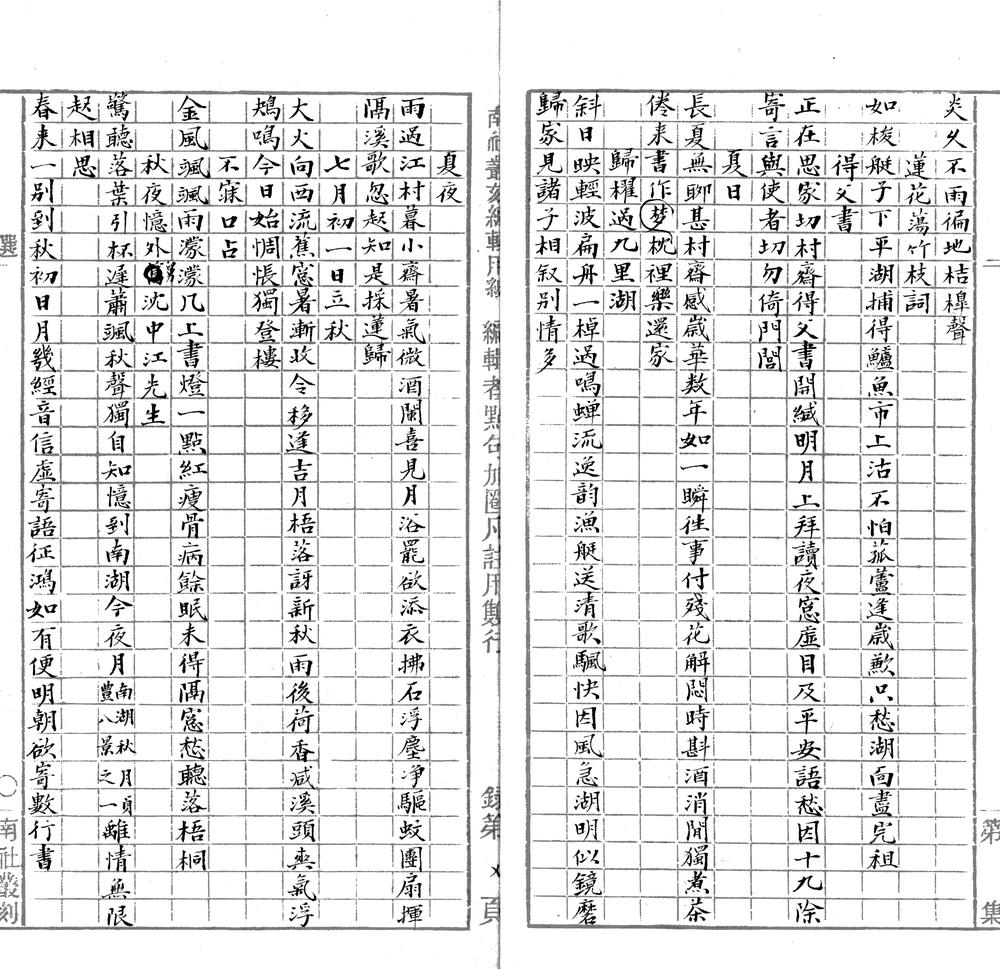 炎久不雨徧地桔槹聲
蓮花蕩竹枝詞
如梭艇子下平湖捕得鱸魚市上沽不怕菰蘆逢歲歉只愁湖面盡完租
得父書
正在思家切村齋得父書開緘明月上拜讀夜窻虛目及平安語愁因十九除
寄言與使者切勿倚門閭
夏日
長夏無聊甚村齋感歲華数年如一瞬徃事付殘花解悶時斟酒消閒獨煮茶
倦来書作枕夢裡樂還家
歸櫂過九里湖
斜日映輕波扁舟一棹過鳴蟬流逸韵漁艇送清歌颿快因風急湖明似鏡磨
歸家見諸子相叙别情多
南社叢刻編輯用紙 編輯者點句加圈凡註用雙行
錄第 頁
夏夜
雨過江村暮小齋暑氣微酒闌喜見月浴罷欲添衣拂石浮塵净驅蚊團扇揮
隔溪歌忽起知是採蓮歸
七月初一日立秋
大火向西流蕉窻暑漸收令移逢吉月梧落訝新秋雨後荷香减溪頭爽氣浮
鴂鳴今日始惆悵獨登樓
不寐口占
金風颯颯雨濛濛几上書燈一點紅瘦骨病餘眠未得隔窻愁聽落梧桐
秋夜憶外舅沈中江先生
驚聽落葉引杯遲蕭颯秋聲獨自知憶到南湖今夜月南湖秋月頁豐八景之一離情無限
起相思
春来一别到秋初日月幾經音信虛寄語征鴻如有便明朝欲寄數行書
選
南社叢刻
二
第 集